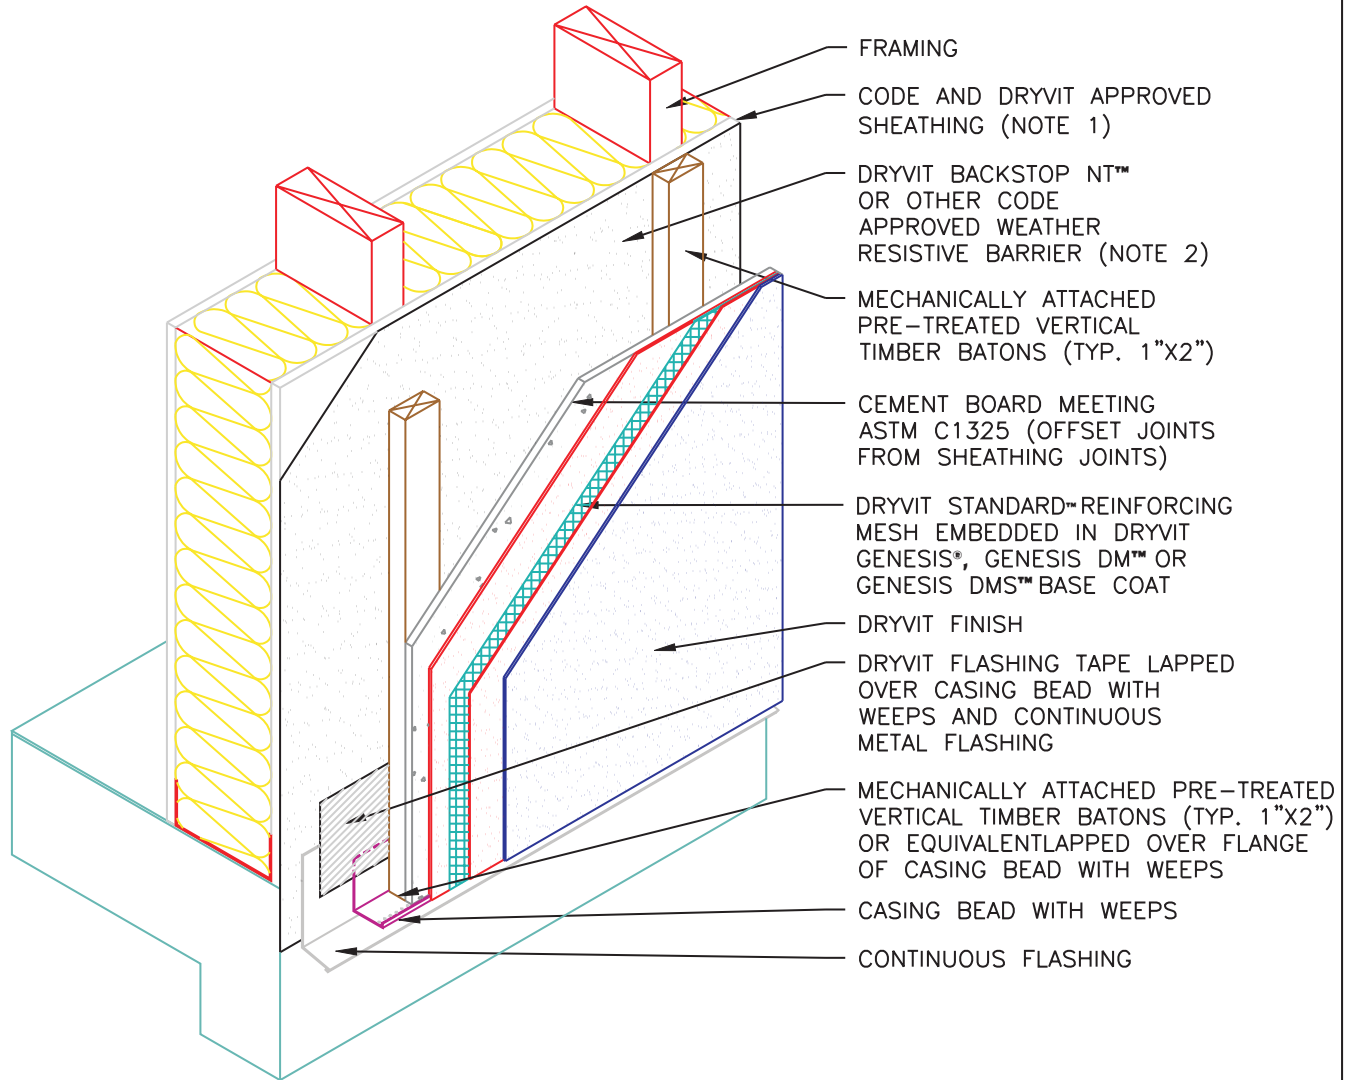 FRAMING
CODE AND DRYVIT APPROVED
SHEATHING (NOTE 1)
DRYVIT BACKSTOP NT™
OR OTHER CODE
APPROVED WEATHER
RESISTIVE BARRIER (NOTE 2)
MECHANICALLY ATTACHED
PRE-TREATED VERTICAL
TIMBER BATONS (TYP. 1"X2")
CEMENT BOARD MEETING
ASTM C1325 (OFFSET JOINTS
FROM SHEATHING JOINTS)
DRYVIT STANDARD™ REINFORCING
MESH EMBEDDED IN DRYVIT
GENESIS®, GENESIS DM™ OR
GENESIS DMS™ BASE COAT
DRYVIT FINISH
DRYVIT FLASHING TAPE LAPPED
OVER CASING BEAD WITH
WEEPS AND CONTINUOUS
METAL FLASHING
MECHANICALLY ATTACHED PRE-TREATED
VERTICAL TIMBER BATONS (TYP. 1"X2")
OR EQUIVALENTLAPPED OVER FLANGE
OF CASING BEAD WITH WEEPS
CASING BEAD WITH WEEPS
CONTINUOUS FLASHING